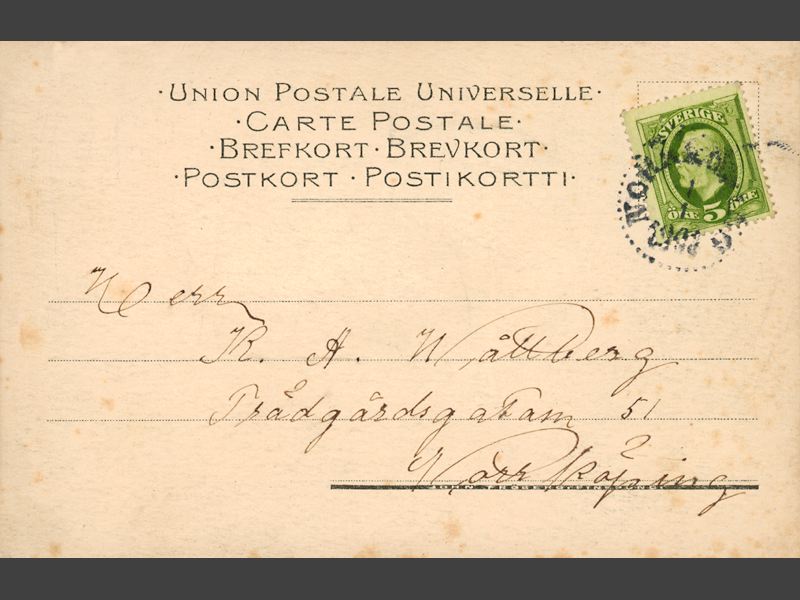 ·UNION POSTALE UNIVERSELLE·
·CARTE POSTALE·
·BREFKORT·BREVKORT·
·POSTKORT·POSTIKORTTI·
SVERIGE
ÖRE 5 ÖRE
Herr
K. A. Wåttberg
Trädgårdsgatam 51
Norrköping